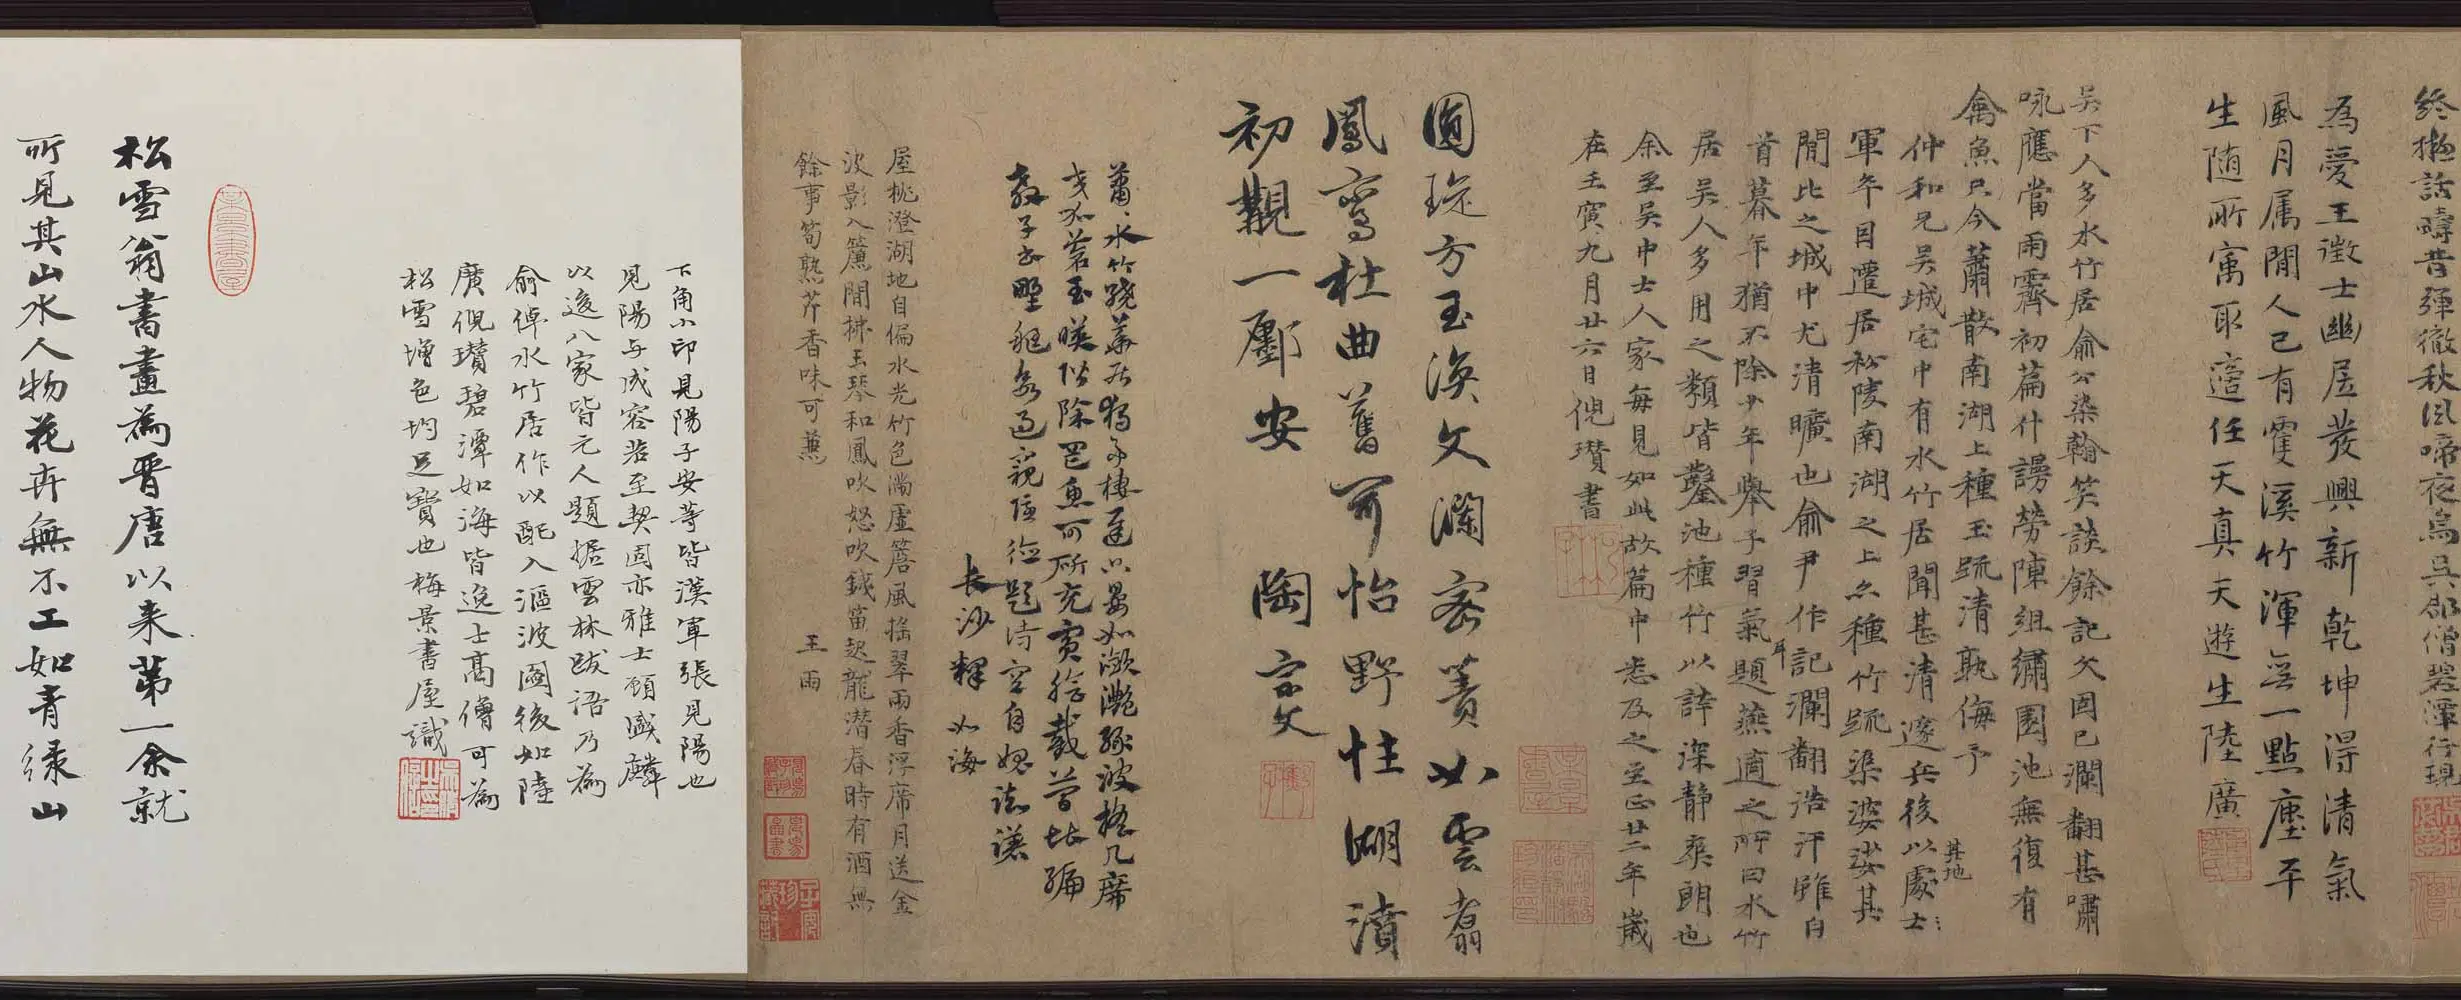 終擬話疇昔彈徹秋風啼夜烏吳郡僧碧潭行琨
為愛王徵士幽居發興新乾坤得清氣
風月属閒人已有霍溪竹渾無一點塵平
生随所寓取適任天真天遊生陸廣
吴下人多水竹居俞公染翰笑談餘記文固已瀾翻甚嘯
咏應當雨霽初篇什謾勞陳組繡園池無復有
禽魚只今蕭散南湖上種玉疏清孰侮予
仲和兄吴城宅中有水竹居聞甚清邃兵後以處士
其地
軍年目遷居松陵南湖之上亦種竹疏渠婆娑其
間比之城中尤清曠也俞尹作記瀾翻浩汗雖白
首暮年猶不除少年舉子習氣題燕適之所曰水竹
耳
居吴人多用之類皆鑿池種竹以誇深静爽朗也
余至吴中士人家每見如此故篇中悉及之至正廿二年歲
在壬寅九月廿六日倪瓚書
圓琁方玉渙文瀾密蕢如雲翥
鳳鸞杜曲舊可怡野性湖濆
初觀一鄽安 陶宗文
蕭蕭水竹繞華居獨子棲遲小晏如瀲灧緑波摇几席
交加蒼玉暎階除罢魚可斫充賓膾載
教子 題詩空自愧
長沙釋如海
屋桃澄湖地自偏水光竹色満虚簷風摇翠雨香浮席月送金
波影入簾間拂玉琴和鳳吹怒吹鐵笛起龍潜春時有酒無
餘事筍熟芹香味可兼
王雨
下角小印見陽子安等皆漢軍張見陽也
見陽与成容若至契固亦雅士顧盛麟
以逡八家皆元人題据雲林跋語乃為
俞倬水竹居作以配入漚波圖後如陸
廣倪瓚碧潭如海皆逸士高僧可為
松雪增色均足寶也梅景書屋識
松雪翁書畫為晋唐以来第一余就
所見其山水人物花卉無不工如青緑山